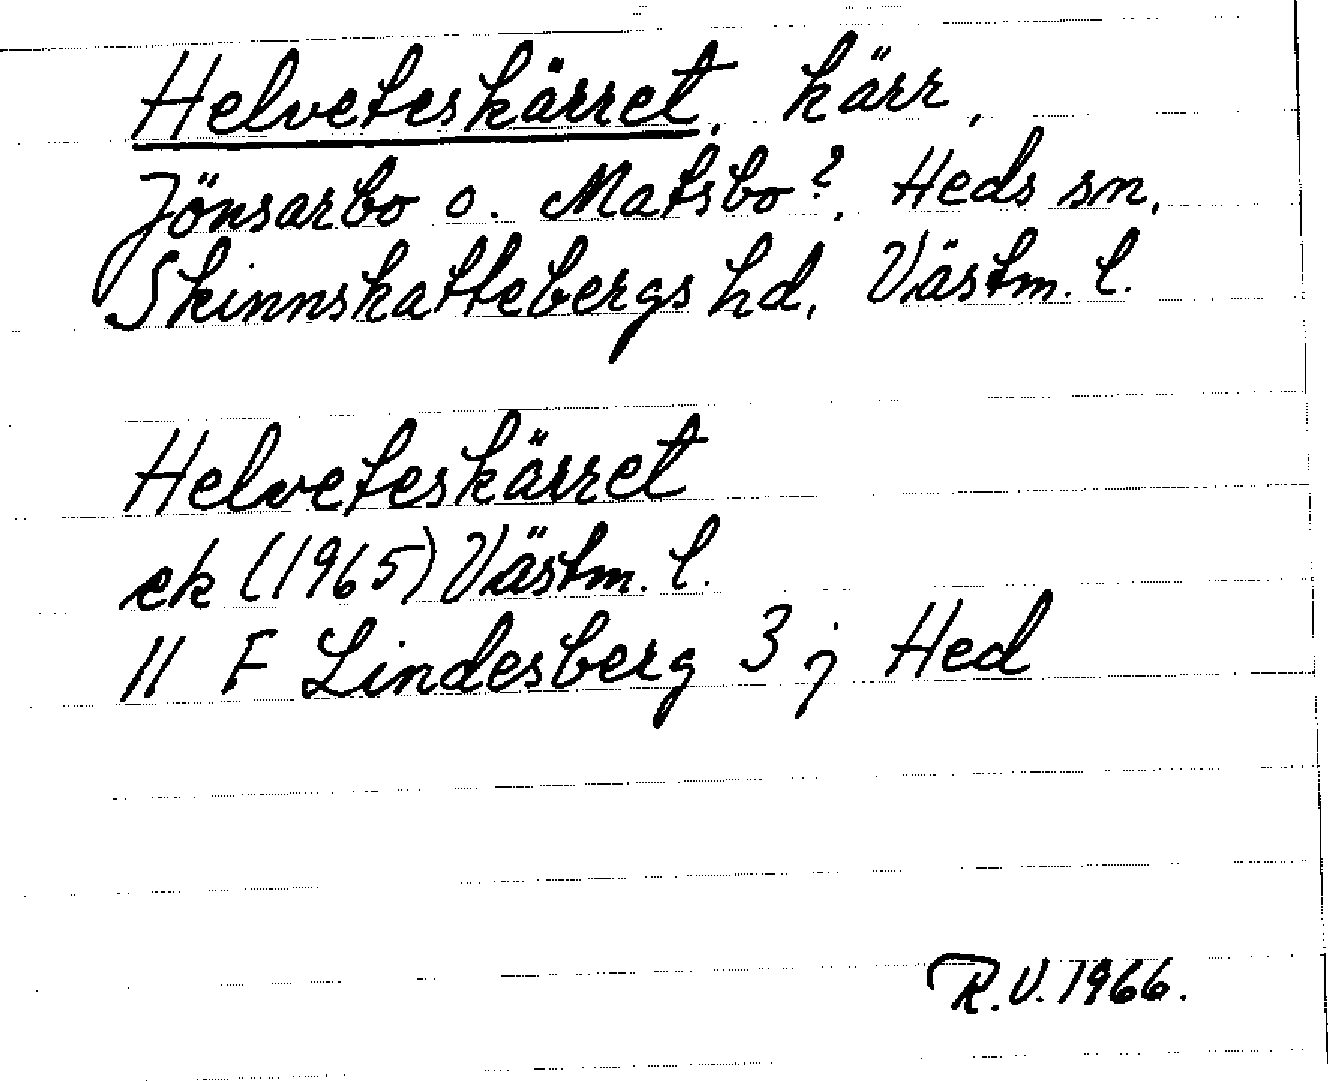 Helveteskärret, kärr,
Jönsarbo o. Matsbo?, Heds sn,
Skinnskattebergs hd, Västm. l.
Helveteskärret
ek (1965) Västm. l.
11 F Lindesberg 3 j Hed
R.V. 1966.